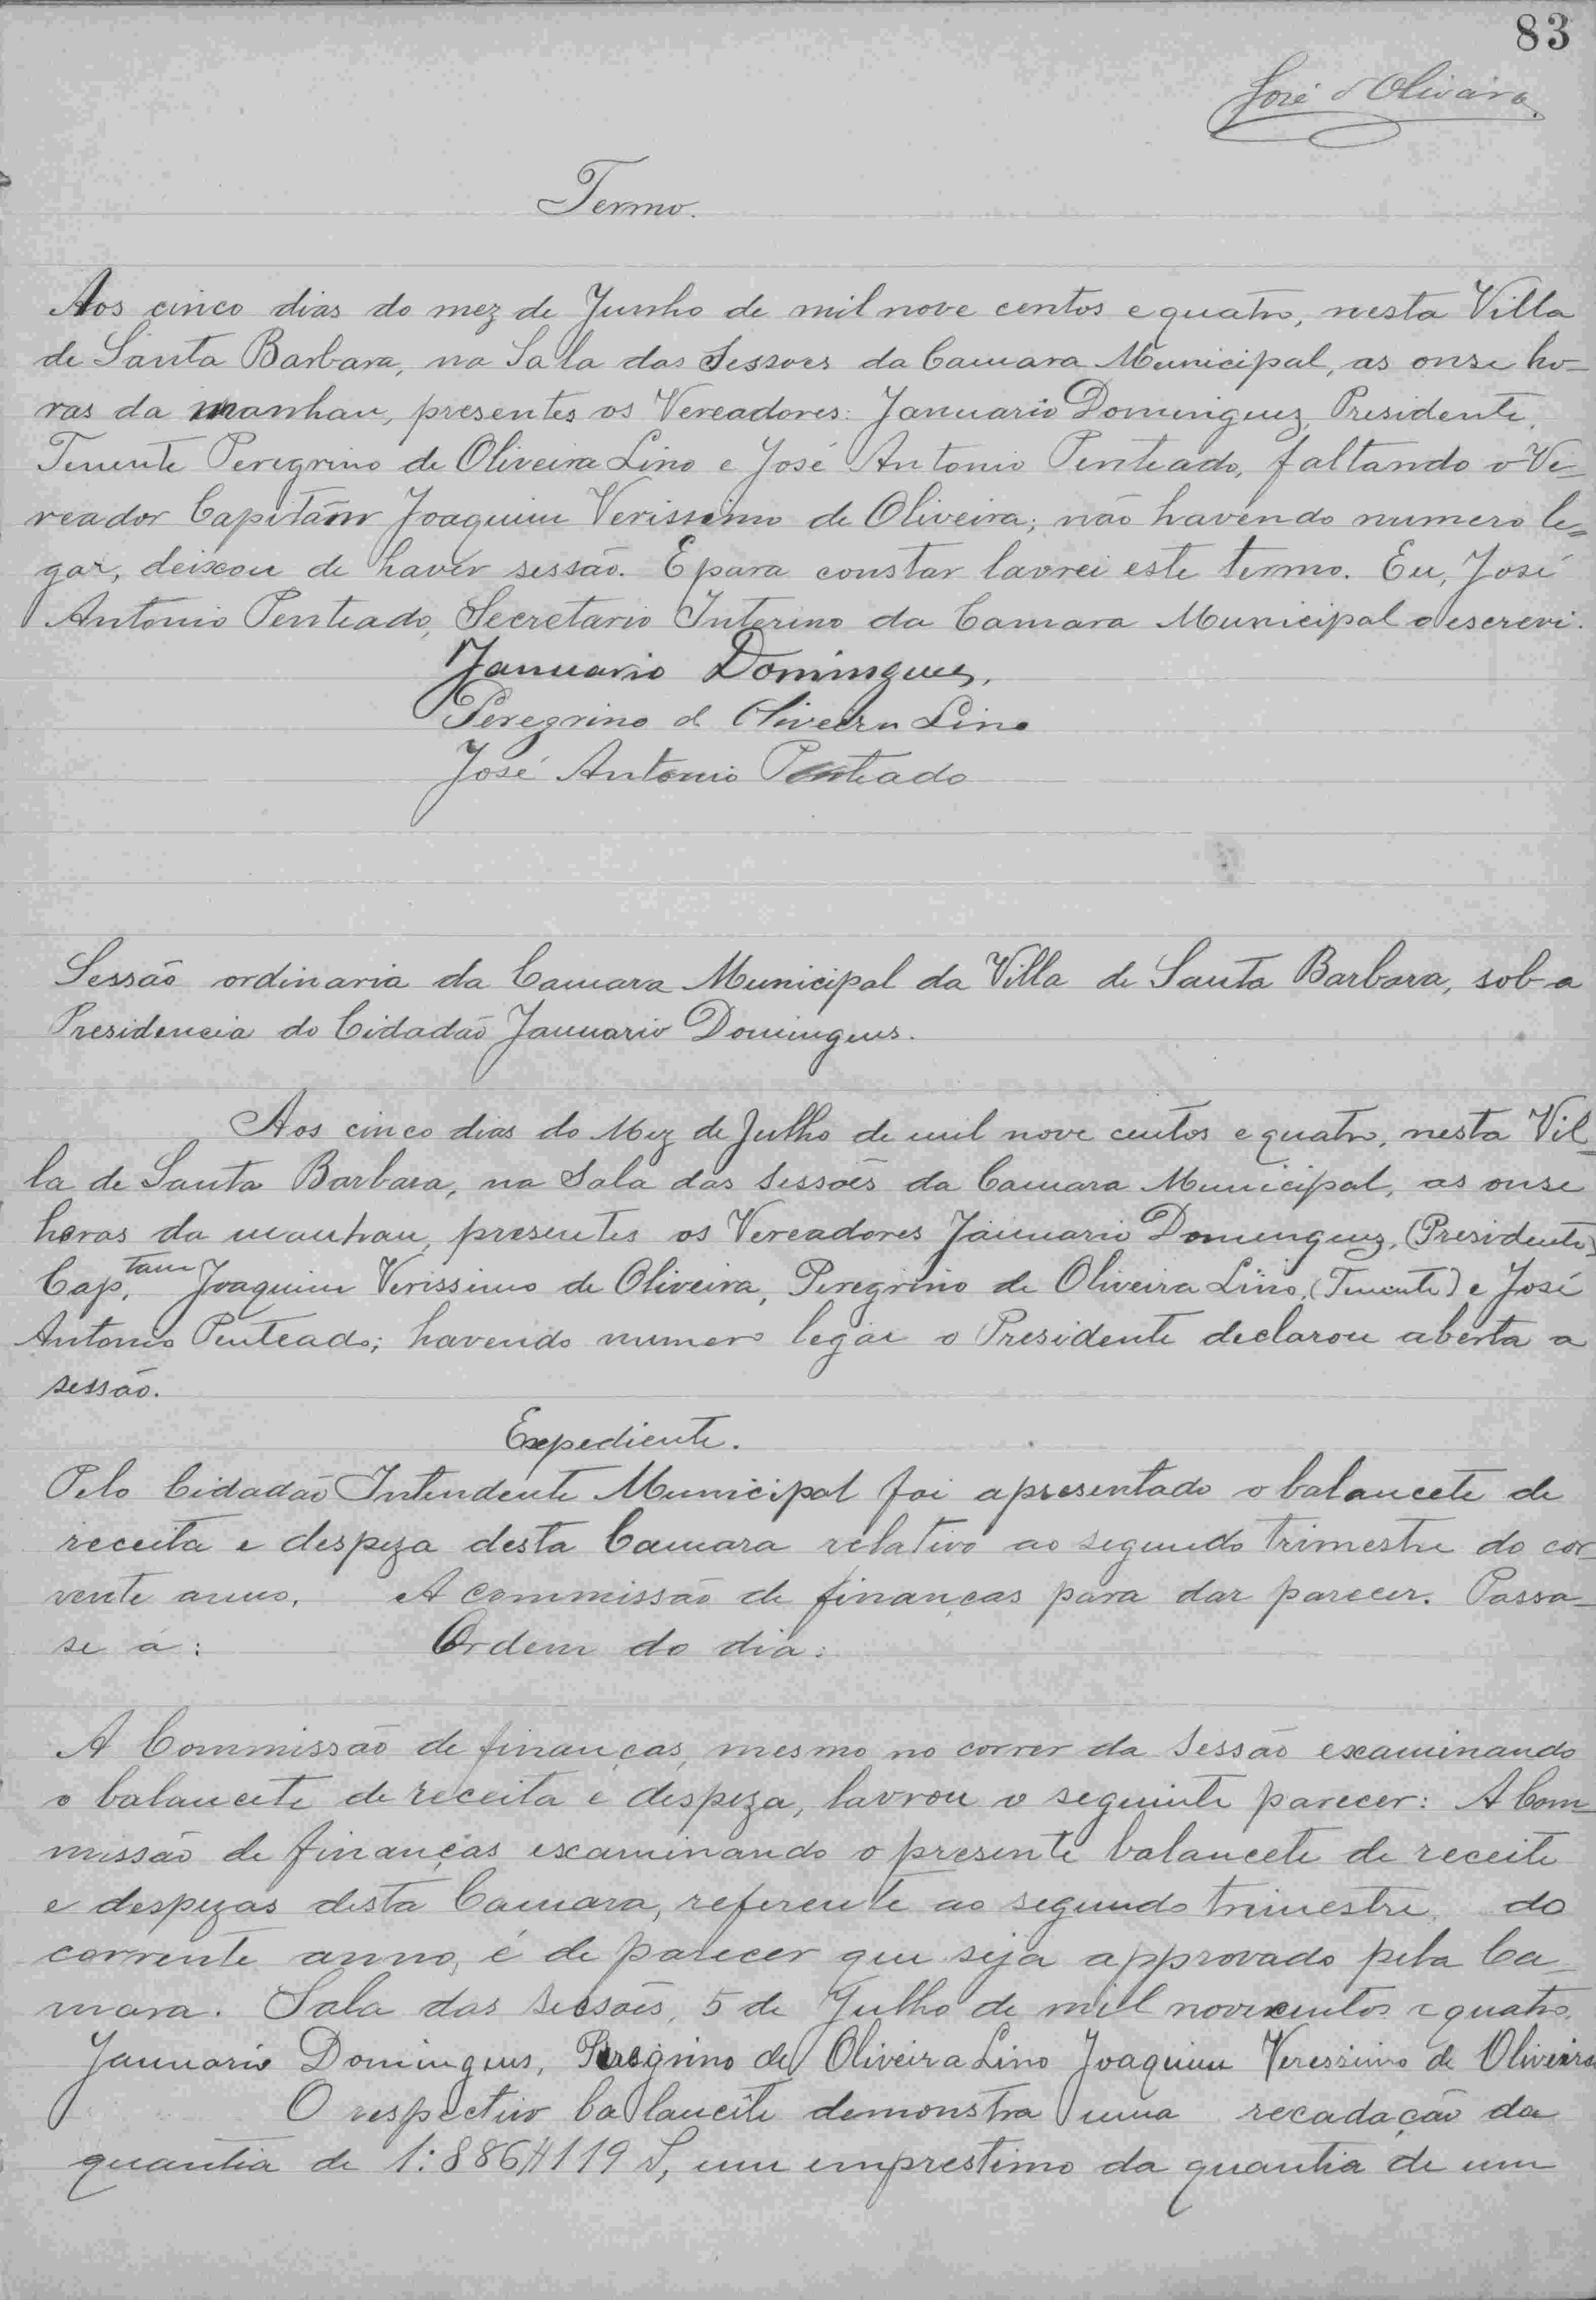 83
José d'Oliveira
Termo.
Aos cinco dias do mez de Junho de mil nove centos e quatro, nesta Villa
de Santa Barbara, na Sala das Sessoes da Camara Municipal, as onse ho-
ras da manhan, presentes os Vereadores: Januario Domingues, Presidente,
Tenente Peregrino de Oliveira Lino e José Antonio Penteado, faltando o Ve-
reador Capitam Joaquim Verissimo de Oliveira; não havendo numero le-
gar, deixou de haver sessão. E para constar lavrei este termo. Eu, José
Antonio Penteado, Secretario Interino da Camara Municipal o escrevi.
Januario Domingues.
Peregrino d Oliveira Lino
José Antonio Penteado
Sessão ordinaria da Camara Municipal da Villa de Santa Barbara, sob a
Presidencia do Cidadão Januario Domingues.
Aos cinco dias do Mez de Julho de mil nove centos e quatro, nesta Vil-
la de Santa Barbara, na Sala das Sessões da Camara Municipal, as onse
horas da manhan, presentes os Vereadores Januario Domingues, (Presidente)
Cap.tam Joaquim Verissimo de Oliveira, Peregrino de Oliveira Lino, (Tenente) e José
Antonio Penteado; havendo numero legar o Presidente declarou aberta a
sessão.
Expediente.
Pelo Cidadão Intendente Municipal foi apresentado o balancete de
receita e despeza desta Camara relativo ao segundo trimestre do cor-
rente anno. A commissão de finanças para dar parecer. Passa-
se a: Ordem do dia:
A Commissão de finanças, mesmo no correr da Sessão examinando
o balancete de receita e despeza, lavrou o seguinte parecer: A Com-
missão de finanças examinando o presente balancete de receite
e despezas desta Camara, referente ao segundo trimestre, do
corrente anno, é de parecer que seja approvado pela Ca-
mara. Sala das Sessões, 5 de Julho de mil novecentos e quatro.
Januario Domingues, Peregrino de Oliveira Lino Joaquim Veressimo de Oliveira
O respectivo balancête demonstra uma recadação da
quantia de 1:886$119 S, um emprestimo da quantia de um